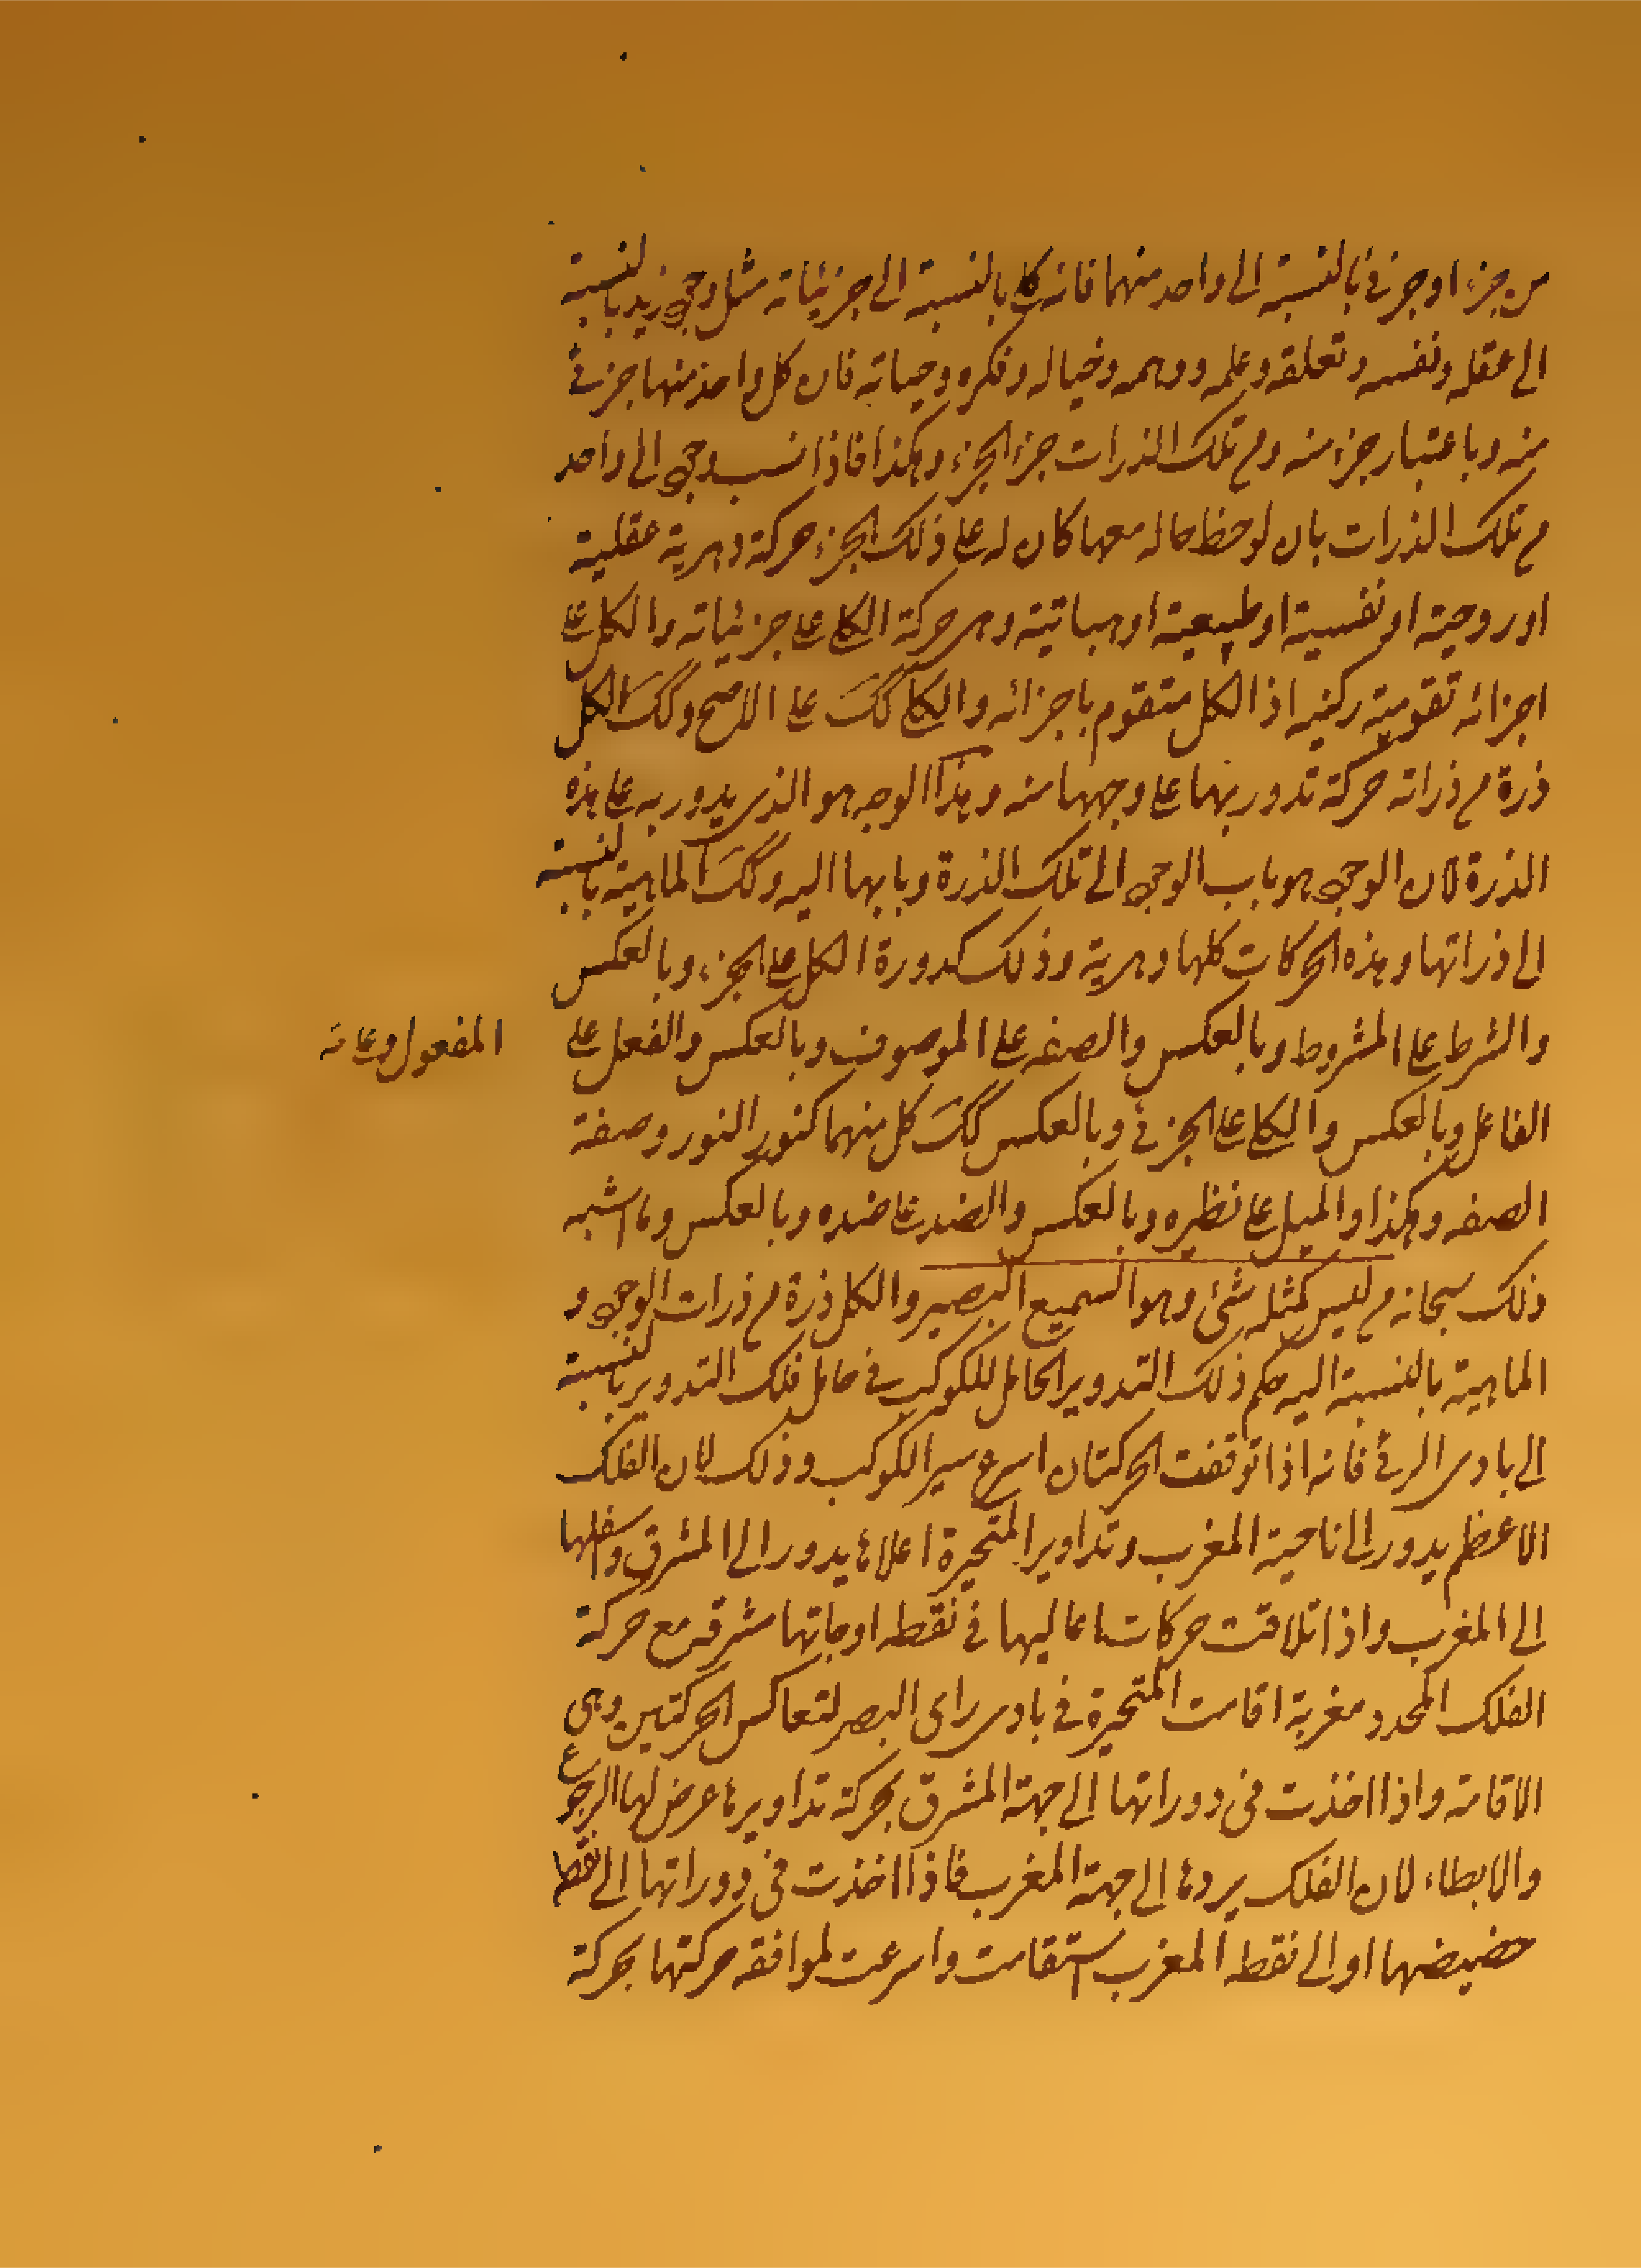 من جزء او جزئى بالنسبة الى واحد منهما فانه كلى بالنسبة الى جزئياته مثل وجود زيد بالنسبة
الى عقله ونفسه وتعلقه وعلمه ووهمه وخياله وفكره وحياته فان كل واحد منها جزئى
منه وباعتبار جزء منه ومن تلك الذرات جزء الجزء وهكذا فاذا نسب وجود الى واحد
من تلك الذرات بان لوحظ حاله معها كان له على ذلك الجزء حركة دهرية عقلية
او روحية او نفسية او طبيعية او هبائية وهى حركة الكلى على جزئياته والكل على
اجزائه تقومية ركنية اذ الكل متقوم باجزائه والكلى كك على الاصح وكك الكل
ذرة من ذراته حركة تدور بها على وجهها منه وهذا الوجه هو الذى يدور به على هذه
الذرة لان الوجود هو باب الوجود الى تلك الذرة وبابها اليه وكك الماهية بالنسبة
الى ذراتها وهذه الحركات كلها دهرية وذلك كدورة الكل على الجزء وبالعكس
والشرط على المشروط وبالعكس والصفه على الموصوف وبالعكس والفعل على
المفعول وعلى
الفاعل وبالعكس والكلى على الجزئى وبالعكس كك كل منهما كنور النور وصفة
الصفه وهكذا والميل على نظيره وبالعكس والضد على ضده وبالعكس وما اشبه
ذلك سبحانه من ليس كمثله شئ وهو السميع البصير والكل ذرة من ذرات الوجود و
الماهية بالنسبة اليه حكم ذلك التدوير الحامل للكوكب فى حامل فلك التدوير بالنسبة
الى بادى الرئى فانه اذا توقفت الحركتان اسرع سير الكوكب وذلك لان الفلك
الاعظم يدور الى ناحية المغرب وتداوير المتحيرة اعلاها يدور الى المشرق واسفلها
الى المغرب واذا تلاقت حركات اعاليها فى نقطه اوجاتها مشرقه مع حركة
الفلك المحدد مغربة اقامت المتحيرة فى بادى راى البصر لتعاكس الحركتين وهى
الاقامة واذا اخذت فى دوراتها الى جهة المشرق بحركة تداويرها عرض لها الرجوع
والابطاء لان الفلك يردها الى جهة المغرب فاذا اخذت فى دوراتها الى نقط
حضيضها او الى نقطه المغرب استقامت واسرعت لموافقه حركتها بحركة